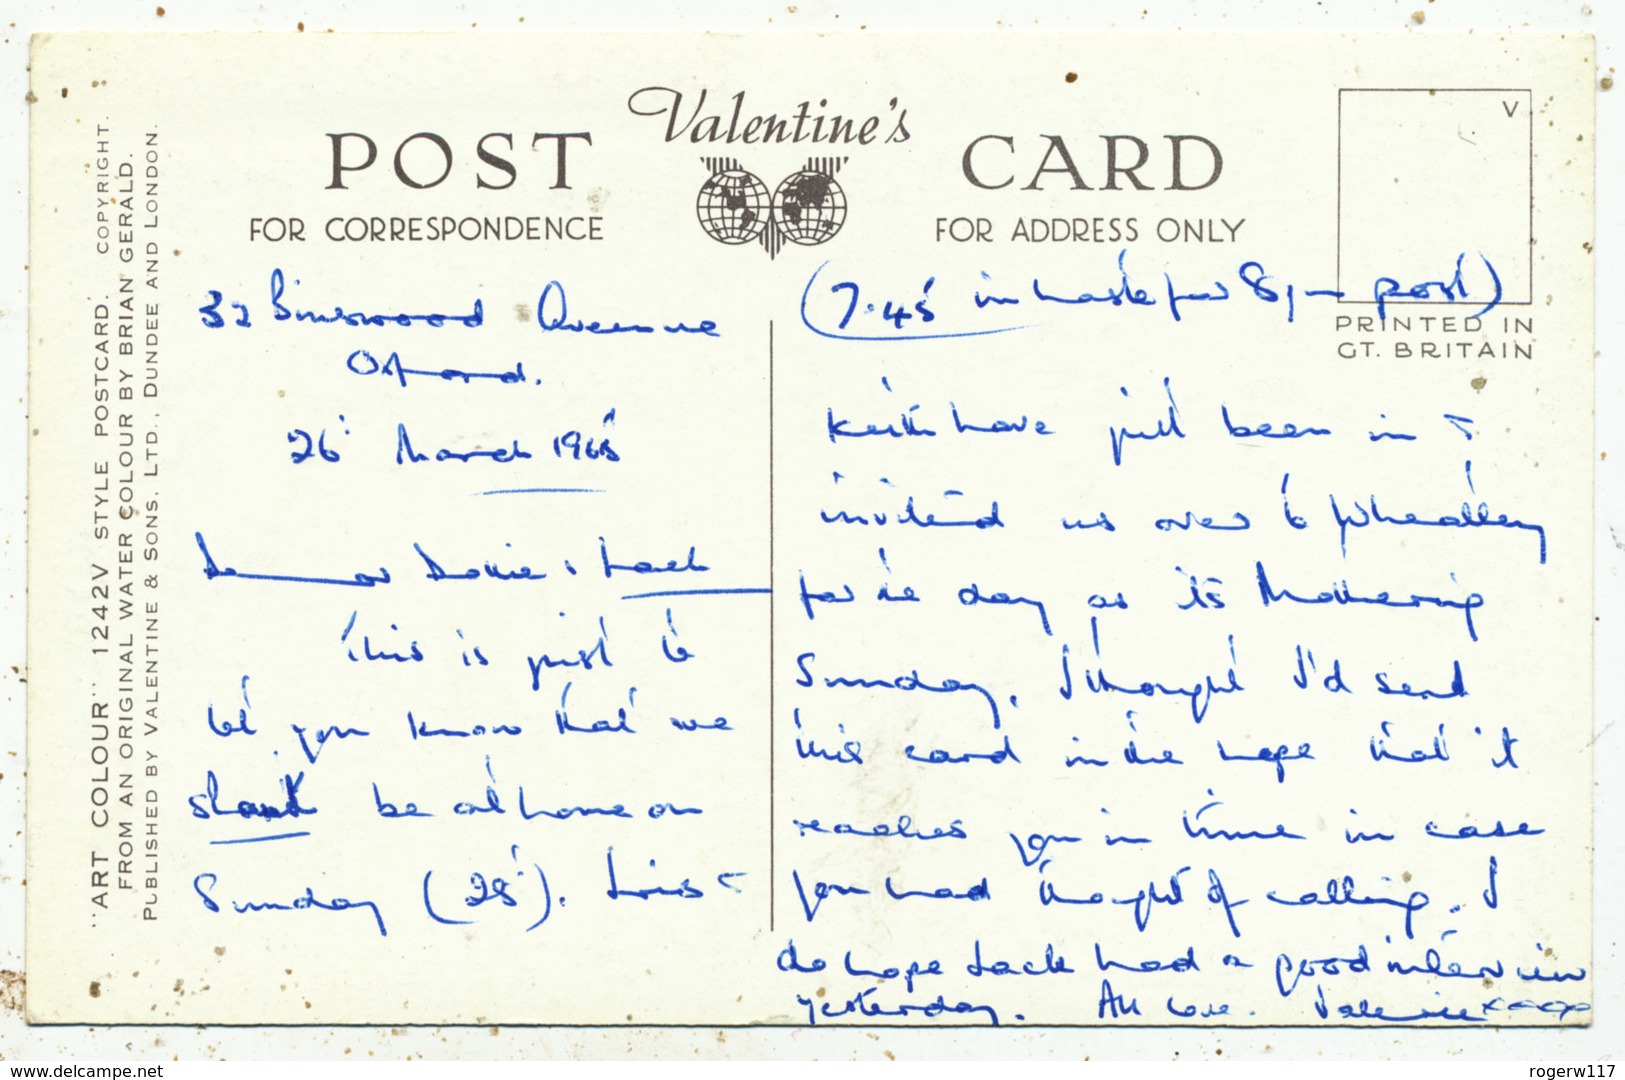 Valentine's
POST CARD
FOR CORRESPONDENCE
FOR ADDRESS ONLY
V
PRINTED IN
GT. BRITAIN
"ART COLOUR" 1242V STYLE POSTCARD. COPYRIGHT.
FROM AN ORIGINAL WATER COLOUR BY BRIAN GERALD.
PUBLISHED BY VALENTINE & SONS, LTD., DUNDEE AND LONDON.
32 Binswood Avenue
Oxford.
26 March 1965
Dear & Jack
This is just to
let you know that we
shan't be at home on
Sunday (28). Lois &
(7.45 in haste for 8pm post)
Keith have just been in &
invited us over to Wheatley
for the day as its Mothering
Sunday. I thought I'd send
this card in the hope that it
reaches you in time in case
you had thought of calling. I
do hope Jack had a good interview
yesterday. All love. Valerie xxxx
www.delcampe.net
rogerw117